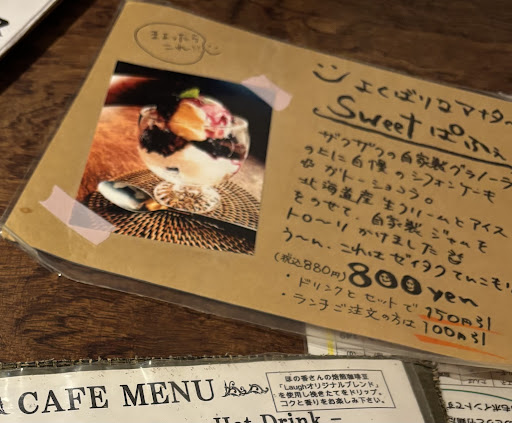 まよったら
これ!!
よくばりコマッタ
Sweetぱふぇ
ザクザクの自家製グラノーラ
の上に自慢のシフォンケーキ
ガトーショコラ。
北海道産生クリームとアイス
をのせて、自家製ジャムを
トローリかけました
う〜ん、これはゼイタクてんこもり
(税込880円) 800yen
・ドリンクとセットで150円引
・ランチご注文の方は100円引
CAFE MENU
ほの香さんの焙煎珈琲豆
「Laughオリジナルブレンド」
を使用し挽きたてをドリップ。
コクと香りをお楽しみ下さい。
Hot Drink -